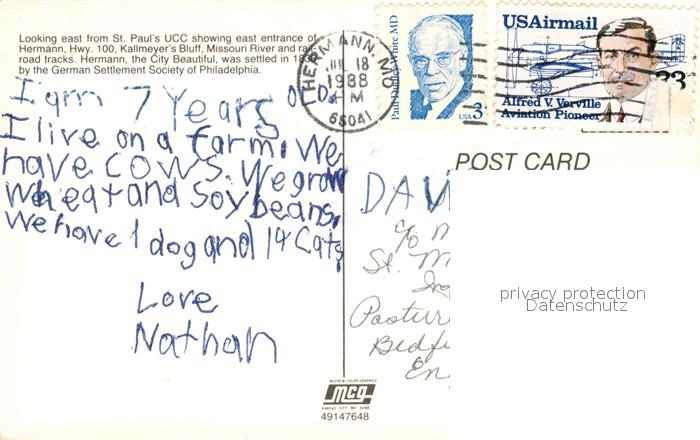 Looking east from St. Paul's UCC showing east entrance of
Hermann, Hwy. 100, Kallmeyer's Bluff, Missouri River and rail-
road tracks. Hermann, the City Beautiful, was settled in 183
by the German Settlement Society of Philadelphia.
HERMANN, MO
JUL 18
1988
PM
65041
Paul Dudley White MD
USA 3
USAirmail
33
Alfred V. Verville
Aviation Pioneer
POST CARD
I am 7 Years Old.
I live on a farm. We
have cows. We grow
wheat and soybeans.
we have 1 dog and 14 cats.
Love
Nathan
DAV
c/o M
St. M
Pastur
Bedf
En
privacy protection
Datenschutz
McGREW COLOR GRAPHICS
mcg
KANSAS CITY, MO 64108
49147648